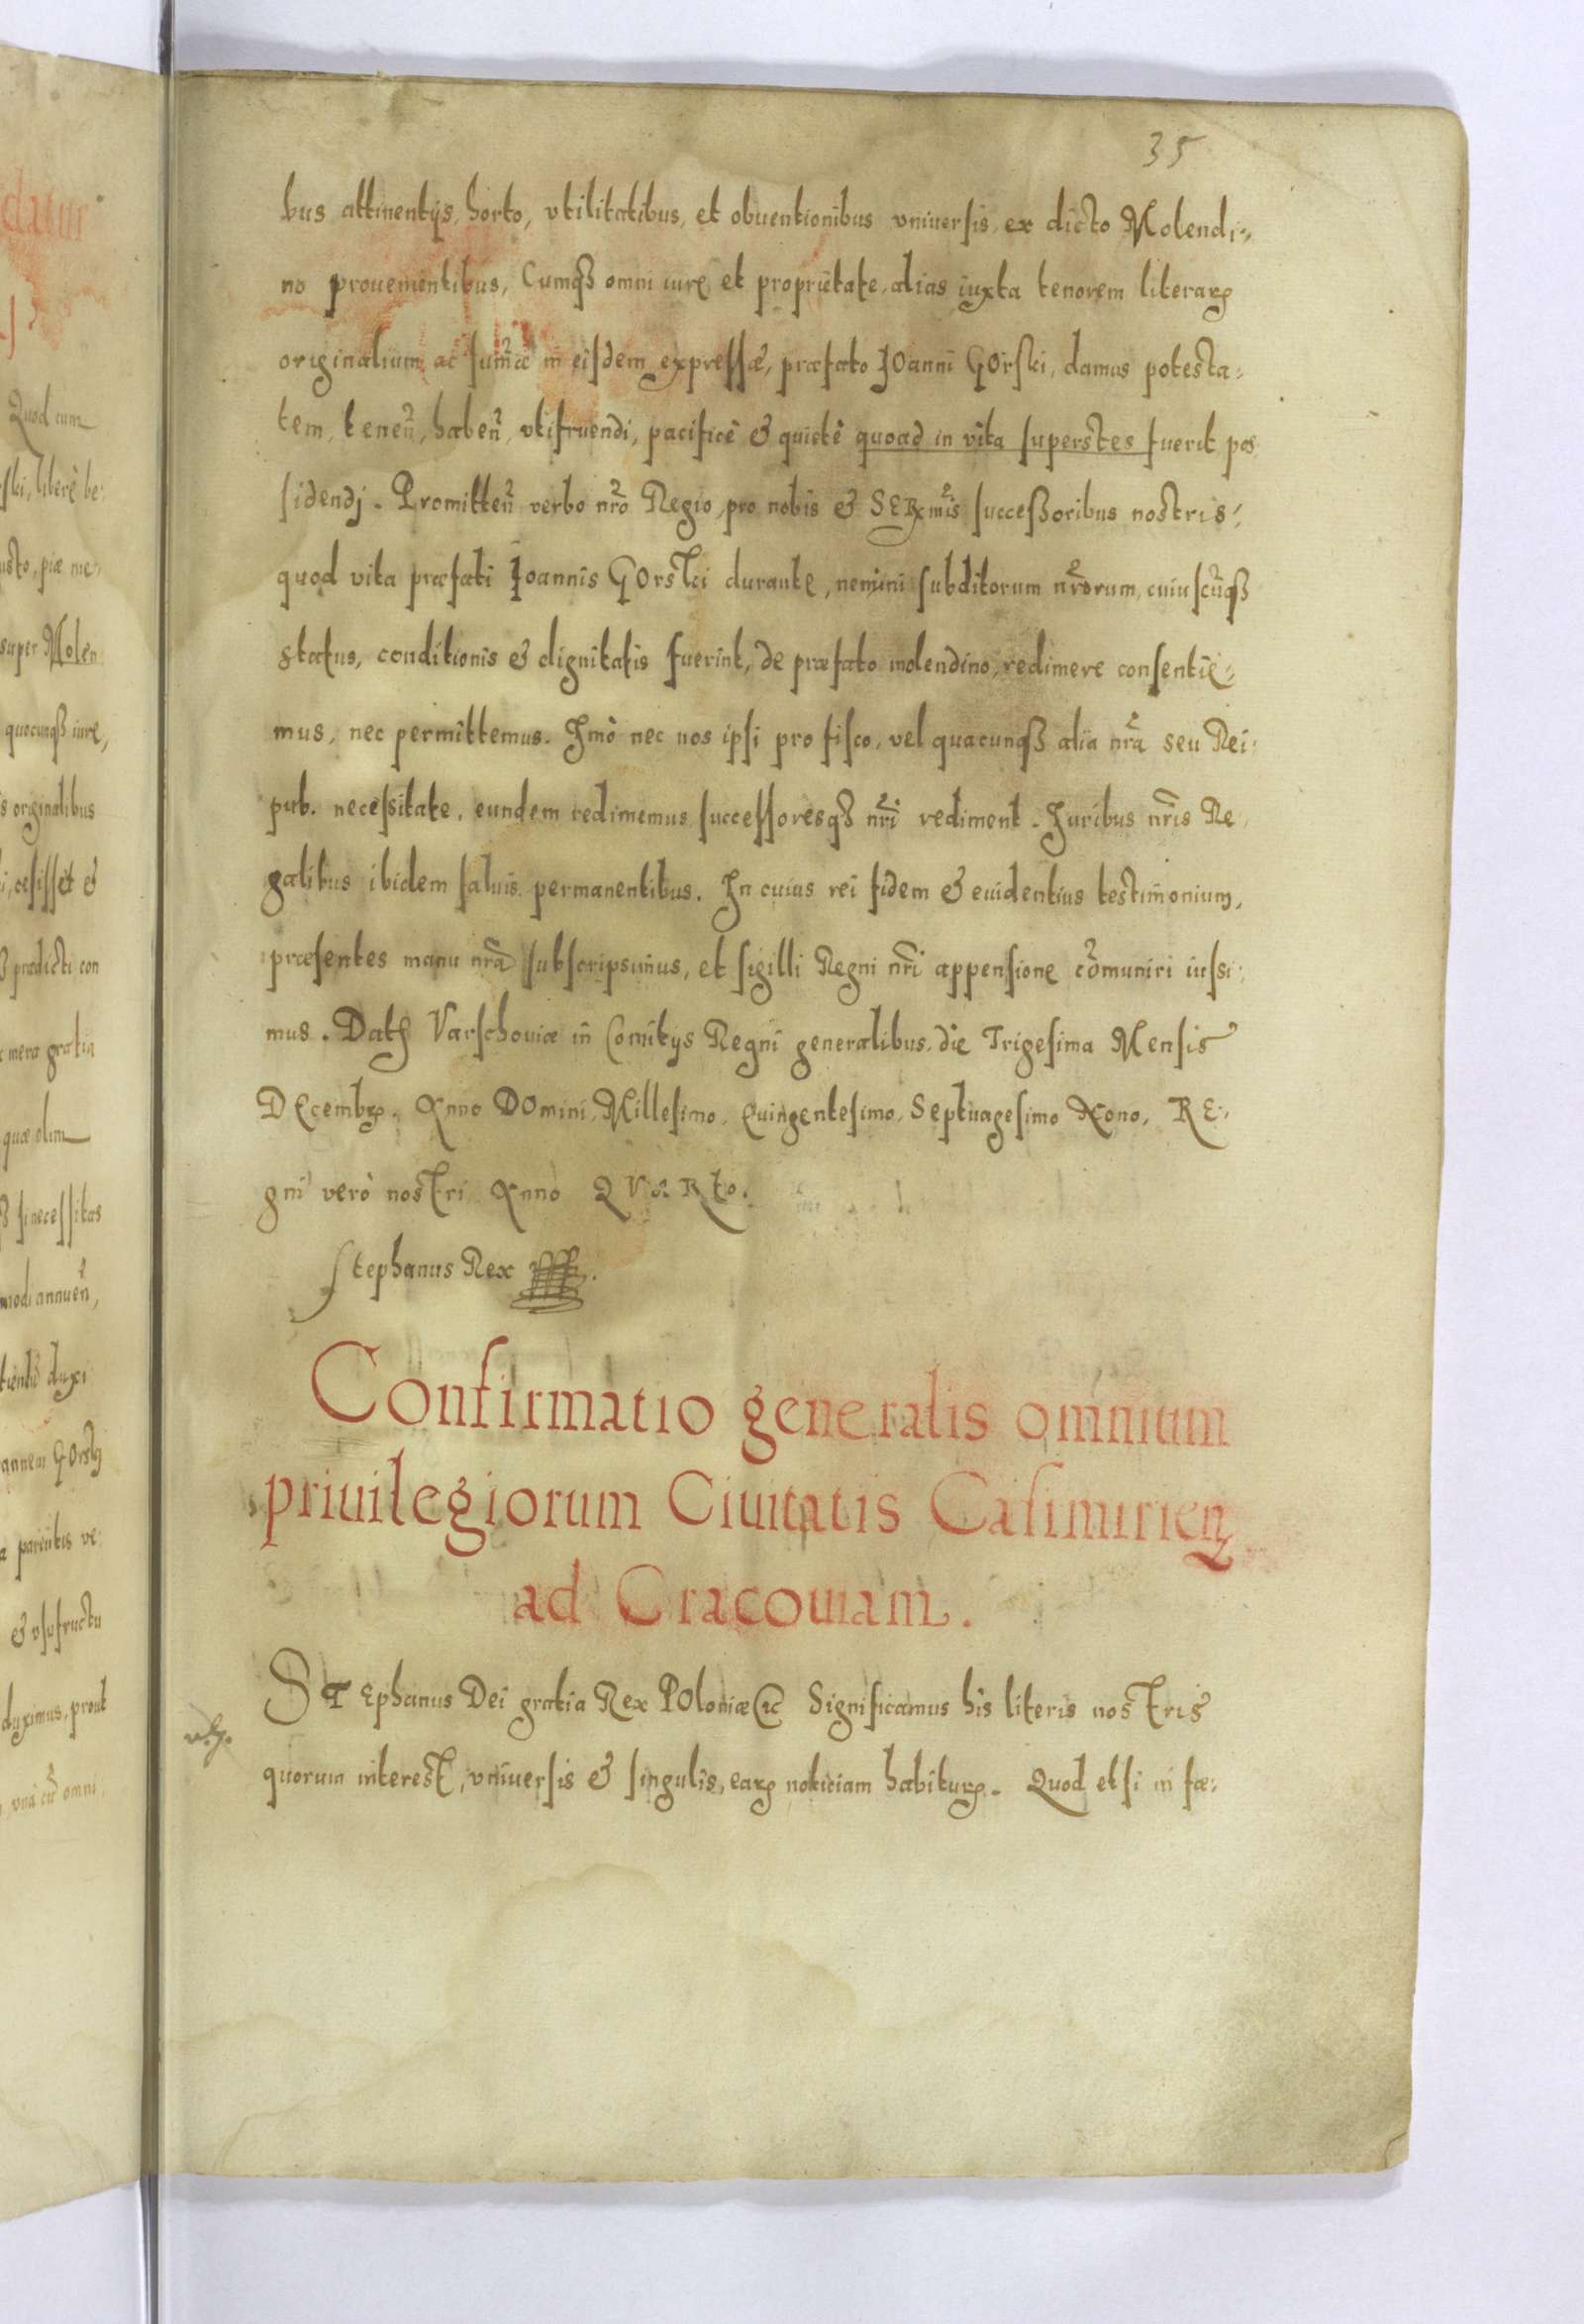 35
bus attinentijs, horto, vtilitatibus, et obuentionibus vniuersis, ex dicto Molendi-
no prouenientibus, Cumqȝ omni iure et proprietate, alias iuxta tenorem literarꝝ
originalium, ac sum̃æ in eisdem expressæ, præfato Joanni GOrski, damus potesta-
tem, teneñ, habeñ, vtifruendi, pacificè & quietè quoad in vita superstes fuerit pos
sidendj. Promitteñ verbo nr̃o Regio, pro nobis & SERmis successoribus nostris:
quod vita præfati Joannis GOrski durante, nemini subditorum nr̃orum, cuiuscũqȝ
status, conditionis & dignitatis fuerint, de præfato molendino, redimere consentie-
mus, nec permittemus. Imò nec nos ipsi pro fisco, vel quacunqȝ alia nr̃a seu Rei-
pub. necessitate, eundem redimemus successoresqȝ nr̃i rediment. Juribus nr̃is Re-
galibus ibidem saluis permanentibus. In cuius rei fidem & euidentius testimonium,
præsentes manu nr̃a subscripsimus, et sigilli Regni nr̃i appensione cõmuniri iussi-
mus. Datȝ Varschouiæ in Comitijs Regni generalibus, die Trigesima Mensis
DEcembrꝝ. Anno DOmini, Millesimo, Quingentesimo, Septuagesimo Nono, RE-
gni verò nostri Anno QVaRto.
Stephanus Rex
Confirmatio generalis omnium
priuilegiorum Ciuitatis Casimirieñ
ad Cracouiam.
STEphanus Dei gratia Rex POloniæ &c Significamus his literis nostris
quorum interest, vniuersis & singulis, earꝝ noticiam habiturꝝ. Quod etsi in fæ-